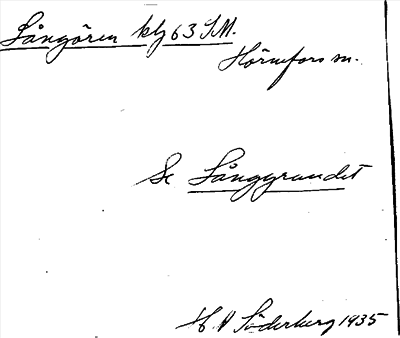 Långören klz 63 S.M.
Hörnefors sn.
Se Långgrundet
H. A Söderberg 1935